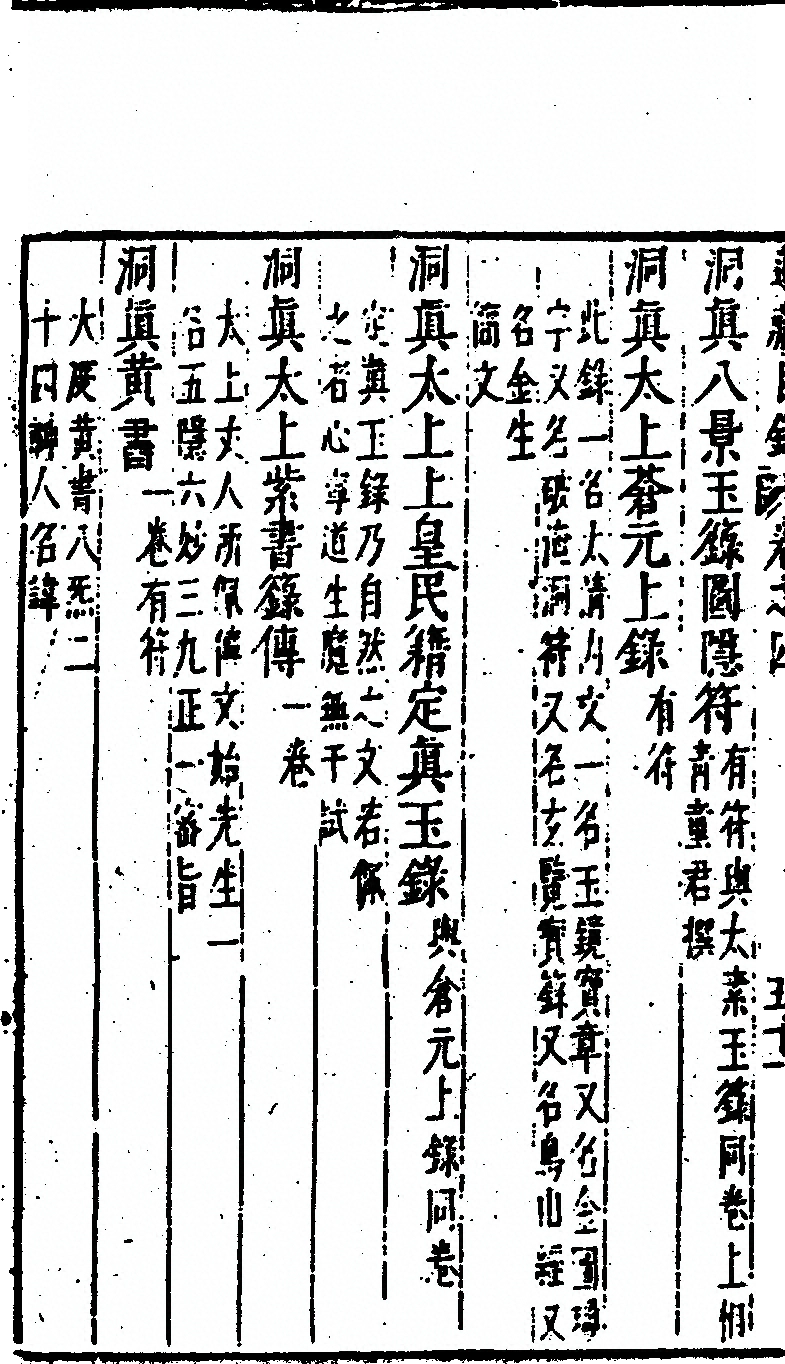 道藏目錄 卷之四 五十一
洞真八景玉籙圖隱符 有符與太素玉籙同卷上相
青童君撰
洞真太上蒼元上錄 有符
此錄一名太清內文一名玉鏡寶章又名金圖
字又名 海洞符又名玄覽寶錄又名鳥山經又
名金生
簡文
洞真太上上皇民籍定真玉錄 與倉元上錄同卷
定真玉錄乃自然之文若佩
之者心寧道生魔無干試
洞真太上紫書籙傳 一卷
太上丈人所佩 文始先生一
名五隱六妙三九正一 旨
洞真黃書 一卷有符
大度黃書八炁二
十四神人名諱